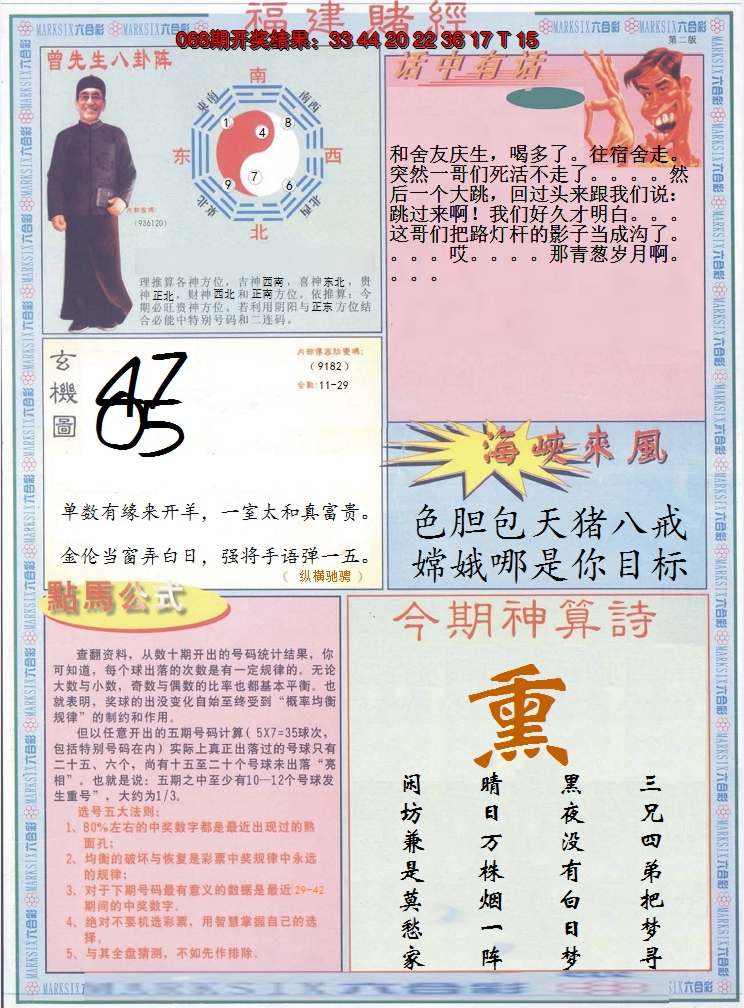 福建賭經
068期开奖结果：33 44 20 22 36 17 T 15
MARKSIX六合彩
第二版
曾先生八卦阵
南
東南
南西
1
4
8
东
西
9
7
6
東北
北西
北
内部密碼:
(936120)
理推算各神方位，吉神西南，喜神东北，贵
神正北，财神西北和正南方位。依推算：今
期必旺贵神方位。若利用阴阳与正东方位结
合必能中特别号码和二连码。
话中有话
和舍友庆生，喝多了。往宿舍走。
突然一哥们死活不走了。。。。然
后一个大跳，回过头来跟我们说：
跳过来啊！我们好久才明白。。。
这哥们把路灯杆的影子当成沟了。
。。。哎。。。。那青葱岁月啊。
。。。
玄機圖
内部傳密防變碼:
(9182)
合数:11-29
47
05
单数有缘来开羊，一室太和真富贵。
金伦当窗弄白日，强将手语弹一五。
( 纵横驰骋 )
海峽來風
色胆包天猪八戒
嫦娥哪是你目标
點馬公式
查翻资料，从数十期开出的号码统计结果，你
可知道，每个球出落的次数是有一定规律的。无论
大数与小数，奇数与偶数的比率也都基本平衡。也
就表明，奖球的出没变化自始至终受到“概率均衡
规律”的制约和作用。
但以任意开出的五期号码计算( 5X7=35球次，
包括特别号码在内) 实际上真正出落过的号球只有
二十五、六个，尚有十五至二十个号球未出落“亮
相”。也就是说：五期之中至少有10—12个号球发
生重号”，大约为1/3。
选号五大法则：
1、80%左右的中奖数字都是最近出现过的熟
面孔；
2、均衡的破坏与恢复是彩票中奖规律中永远
的规律；
3、对于下期号码最有意义的数据是最近29-42
期间的中奖数字。
4、绝对不要机选彩票，用智慧掌握自己的选
择。
5、与其全盘猜测，不如先作排除。
今期神算詩
熏
三兄四弟把梦寻
黑夜没有白日梦
晴日万株烟一阵
闲坊兼是莫愁家